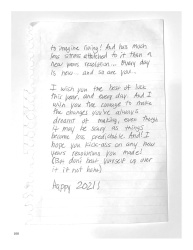 to imagine living! And has much
less stress attached to it than a
new years resolution... Every day
is new... and so are you.
I wish you the best of luck
this year, and every day. And I
wish you the courage to make
the changes you've always
dreamt of making, even though
it may be scary as things
become less predictable. And! I
hope you kick-ass on any new
years resolutions you made!
(But don't beat yourself up over
it if not haha)
Happy 2021!